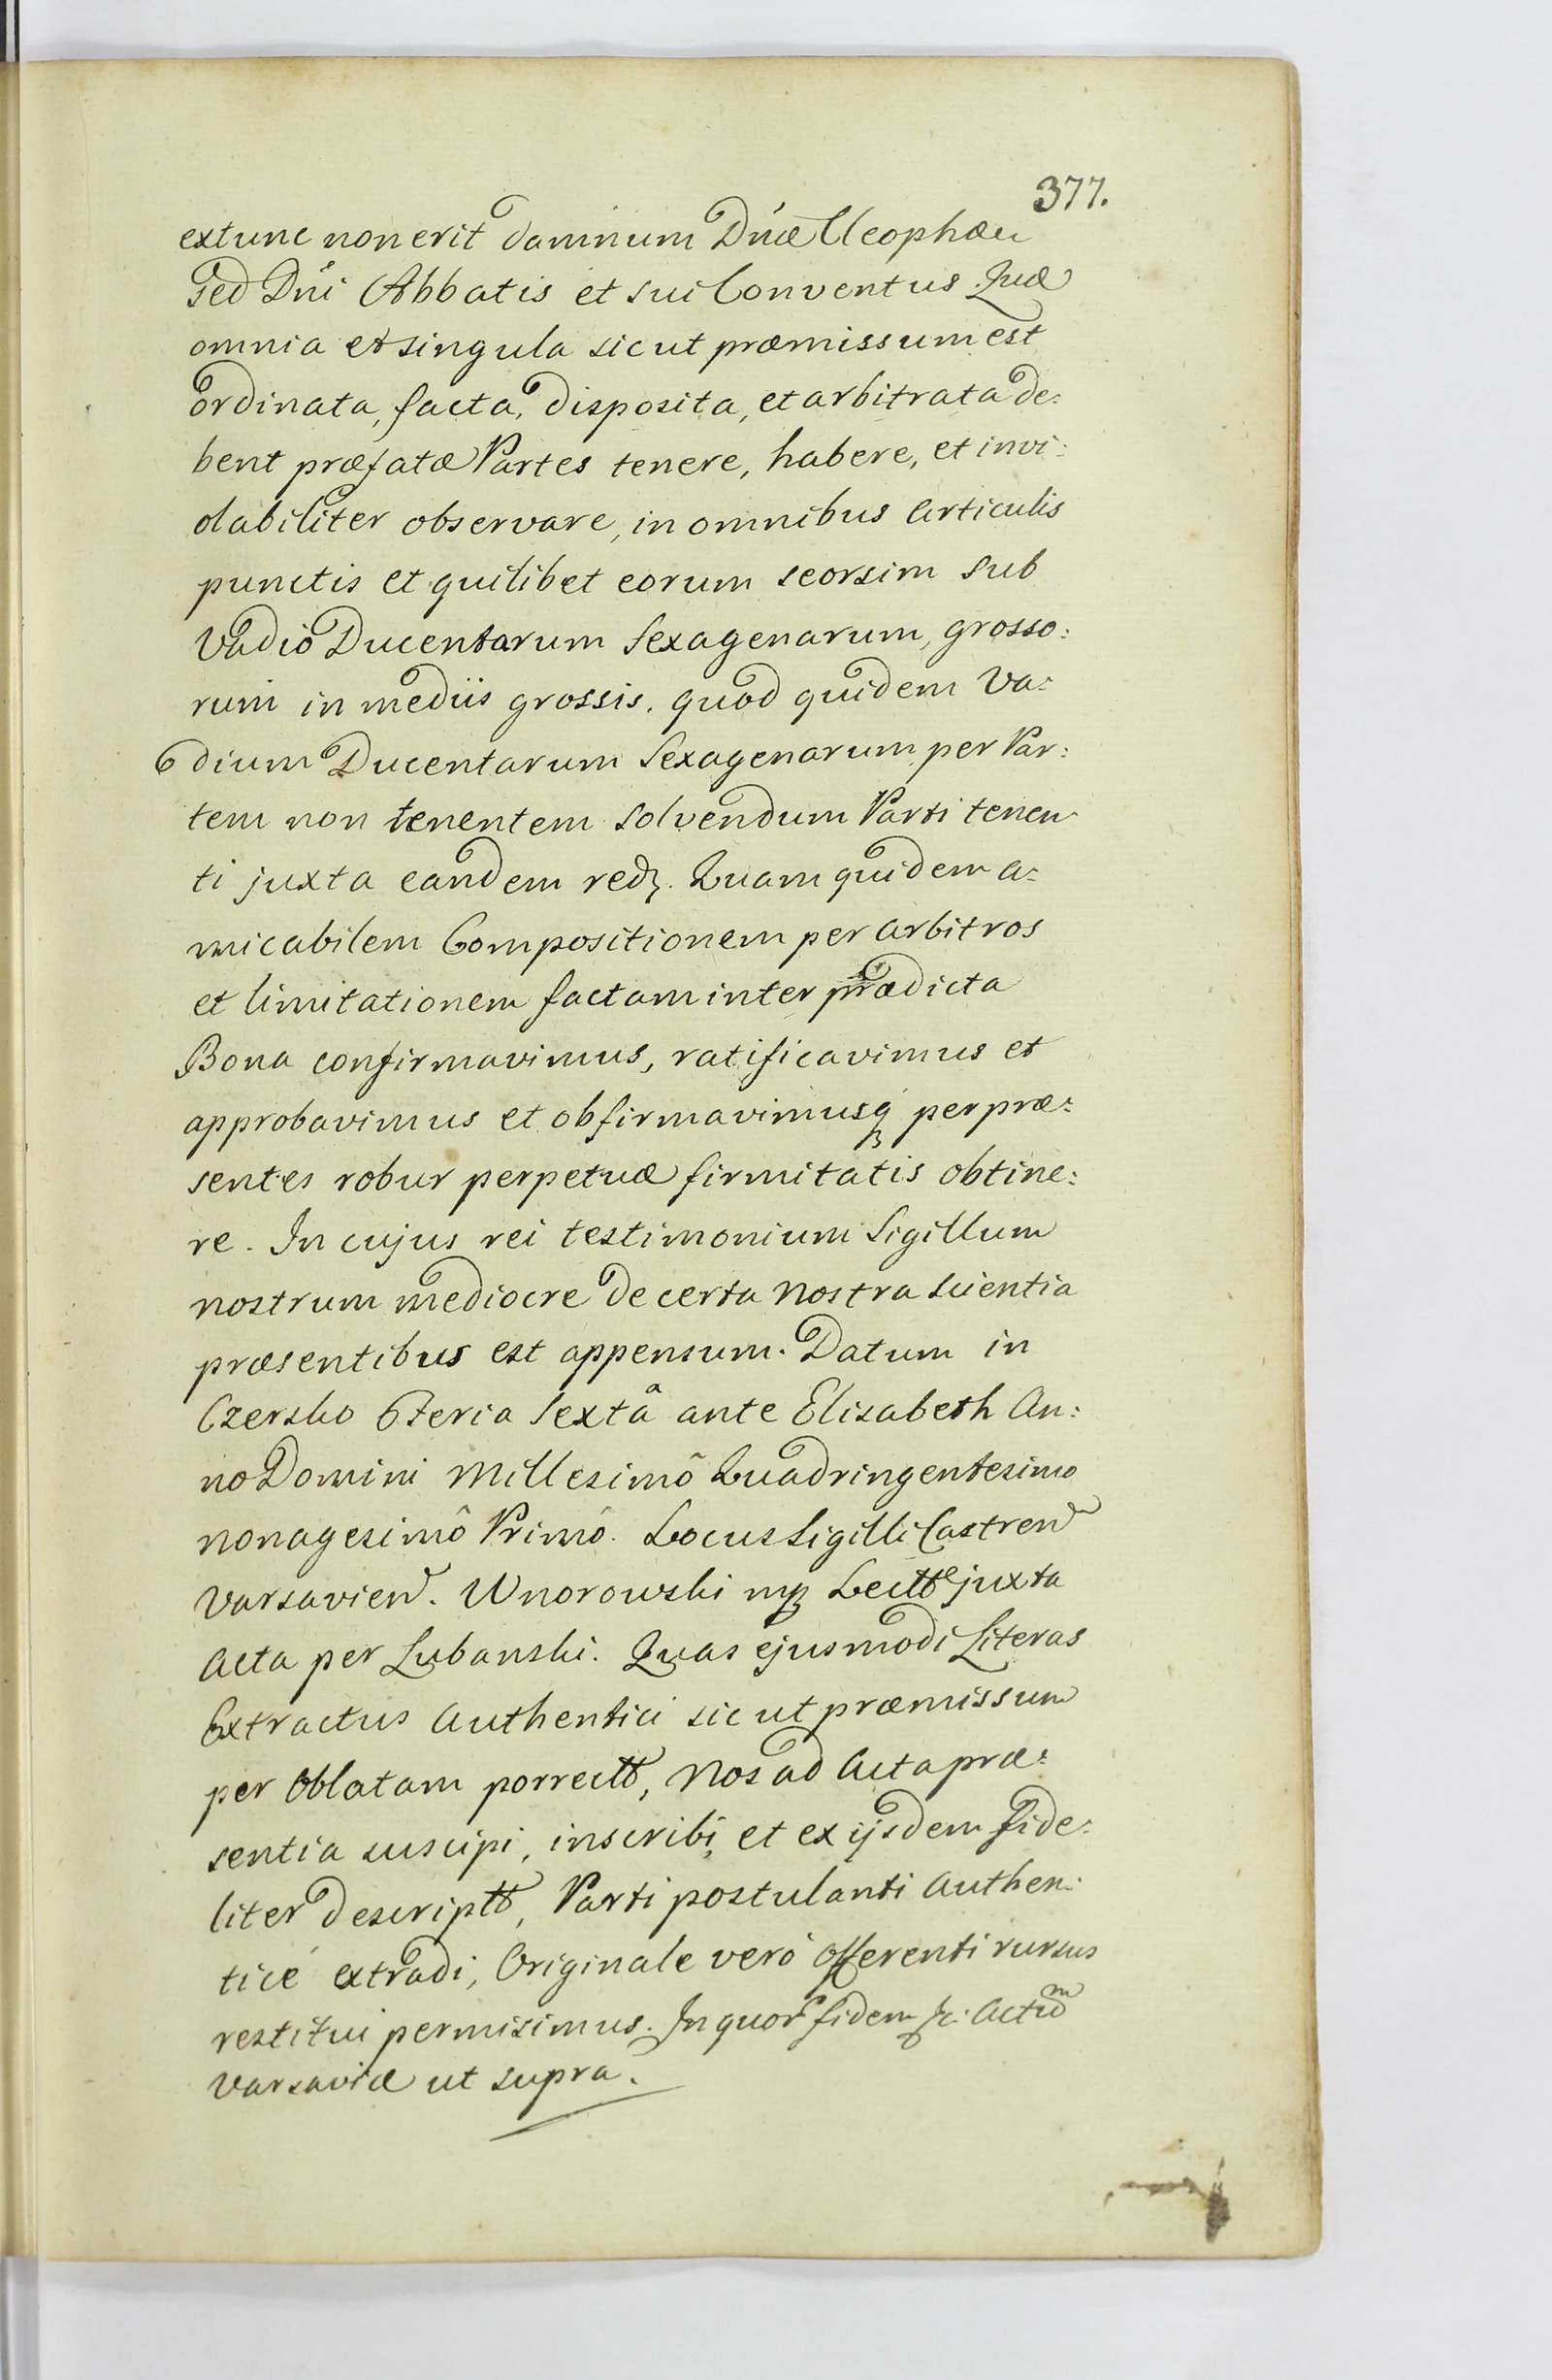 377.
extunc non erit damnum Dnæ Cleophæ
sed Dni Abbatis et sui Conventus. Quæ
omnia et singula sicut præmissum est
ordinata, facta, disposita, et arbitrata de:
bent præfatæ Partes tenere, habere, et invi:
olabiliter observare, in omnibus Articulis
punctis et quilibet eorum seorsim sub
Vadio Ducentarum Sexagenarum, grosso:
rum in mediis grossis. quod quidem Va:
dium Ducentarum Sexagenarum per Par:
tem non tenentem solvendum Parti tenen
ti juxta eandem Quam quidem a:
micabilem Compositionem per arbitros
et limitationem factam inter prædicta
Bona confirmavimus, ratificavimus et
approbavimus et obfirmavimusq3 per præ:
sentes robur perpetuæ firmitatis obtine:
re. In cujus rei testimonium Sigillum
nostrum mediocre de certa nostra scientia
præsentibus est appensum. Datum in
Czersko Feria Sextâ ante Elisabeth An:
no Domini Millesimô Quadringentesimo
nonagesimô Primô. Locus Sigilli Castren
Varsavien. Wnorowski mp Lectt juxta
Acta per Lubanski. Quas ejusmodi Literas
Extractus Authentici sicut præmissum
per Oblatam porrectt, Nos ad Acta præ:
sentia suscipi, inscribi, et ex ijsdem fide:
liter descriptt, Parti postulanti Authen:
ticé extradi, Originale veró Offerenti rursus
restitui permisimus. In quor fidem &c. Actum
Varsaviæ ut supra.